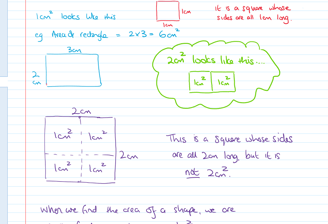 1cm² looks like this
1cm
1cm
it is a square whose
sides are all 1cm long.
eg Area of rectangle = 2x3 = 6cm²
3cm
2
cm
2cm² looks like this...
1cm² 1cm²
2cm
1cm² 1cm²
1cm² 1cm²
2cm
This is a square whose sides
are all 2cm long but it is
not 2cm².
When we find the area of a shape, we are